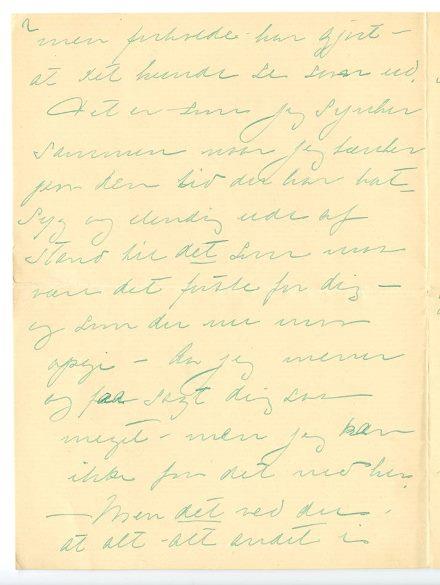 2
men forhvede har gjort –
at det kunde se saa ud.
Det er som jeg synker
sammen naar jeg tænker
paa den tid du har hat –
Syg og elendig ude af
Stand til det som maa
være det første for dig –
og som du nu maa
opgi – Aa jeg mener
og faa sagt dig saa
meget – men jeg kan
ikke for det ned her.
– Men det ved du,
at alt – alt andet is